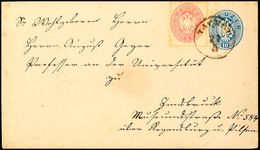 Sr Wohlgeboren Herrn
Herrn August Geyer
Professor an der Universität
zu
Innsbruck
Museumstraße No. 584
über Regensburg u. Pilsen